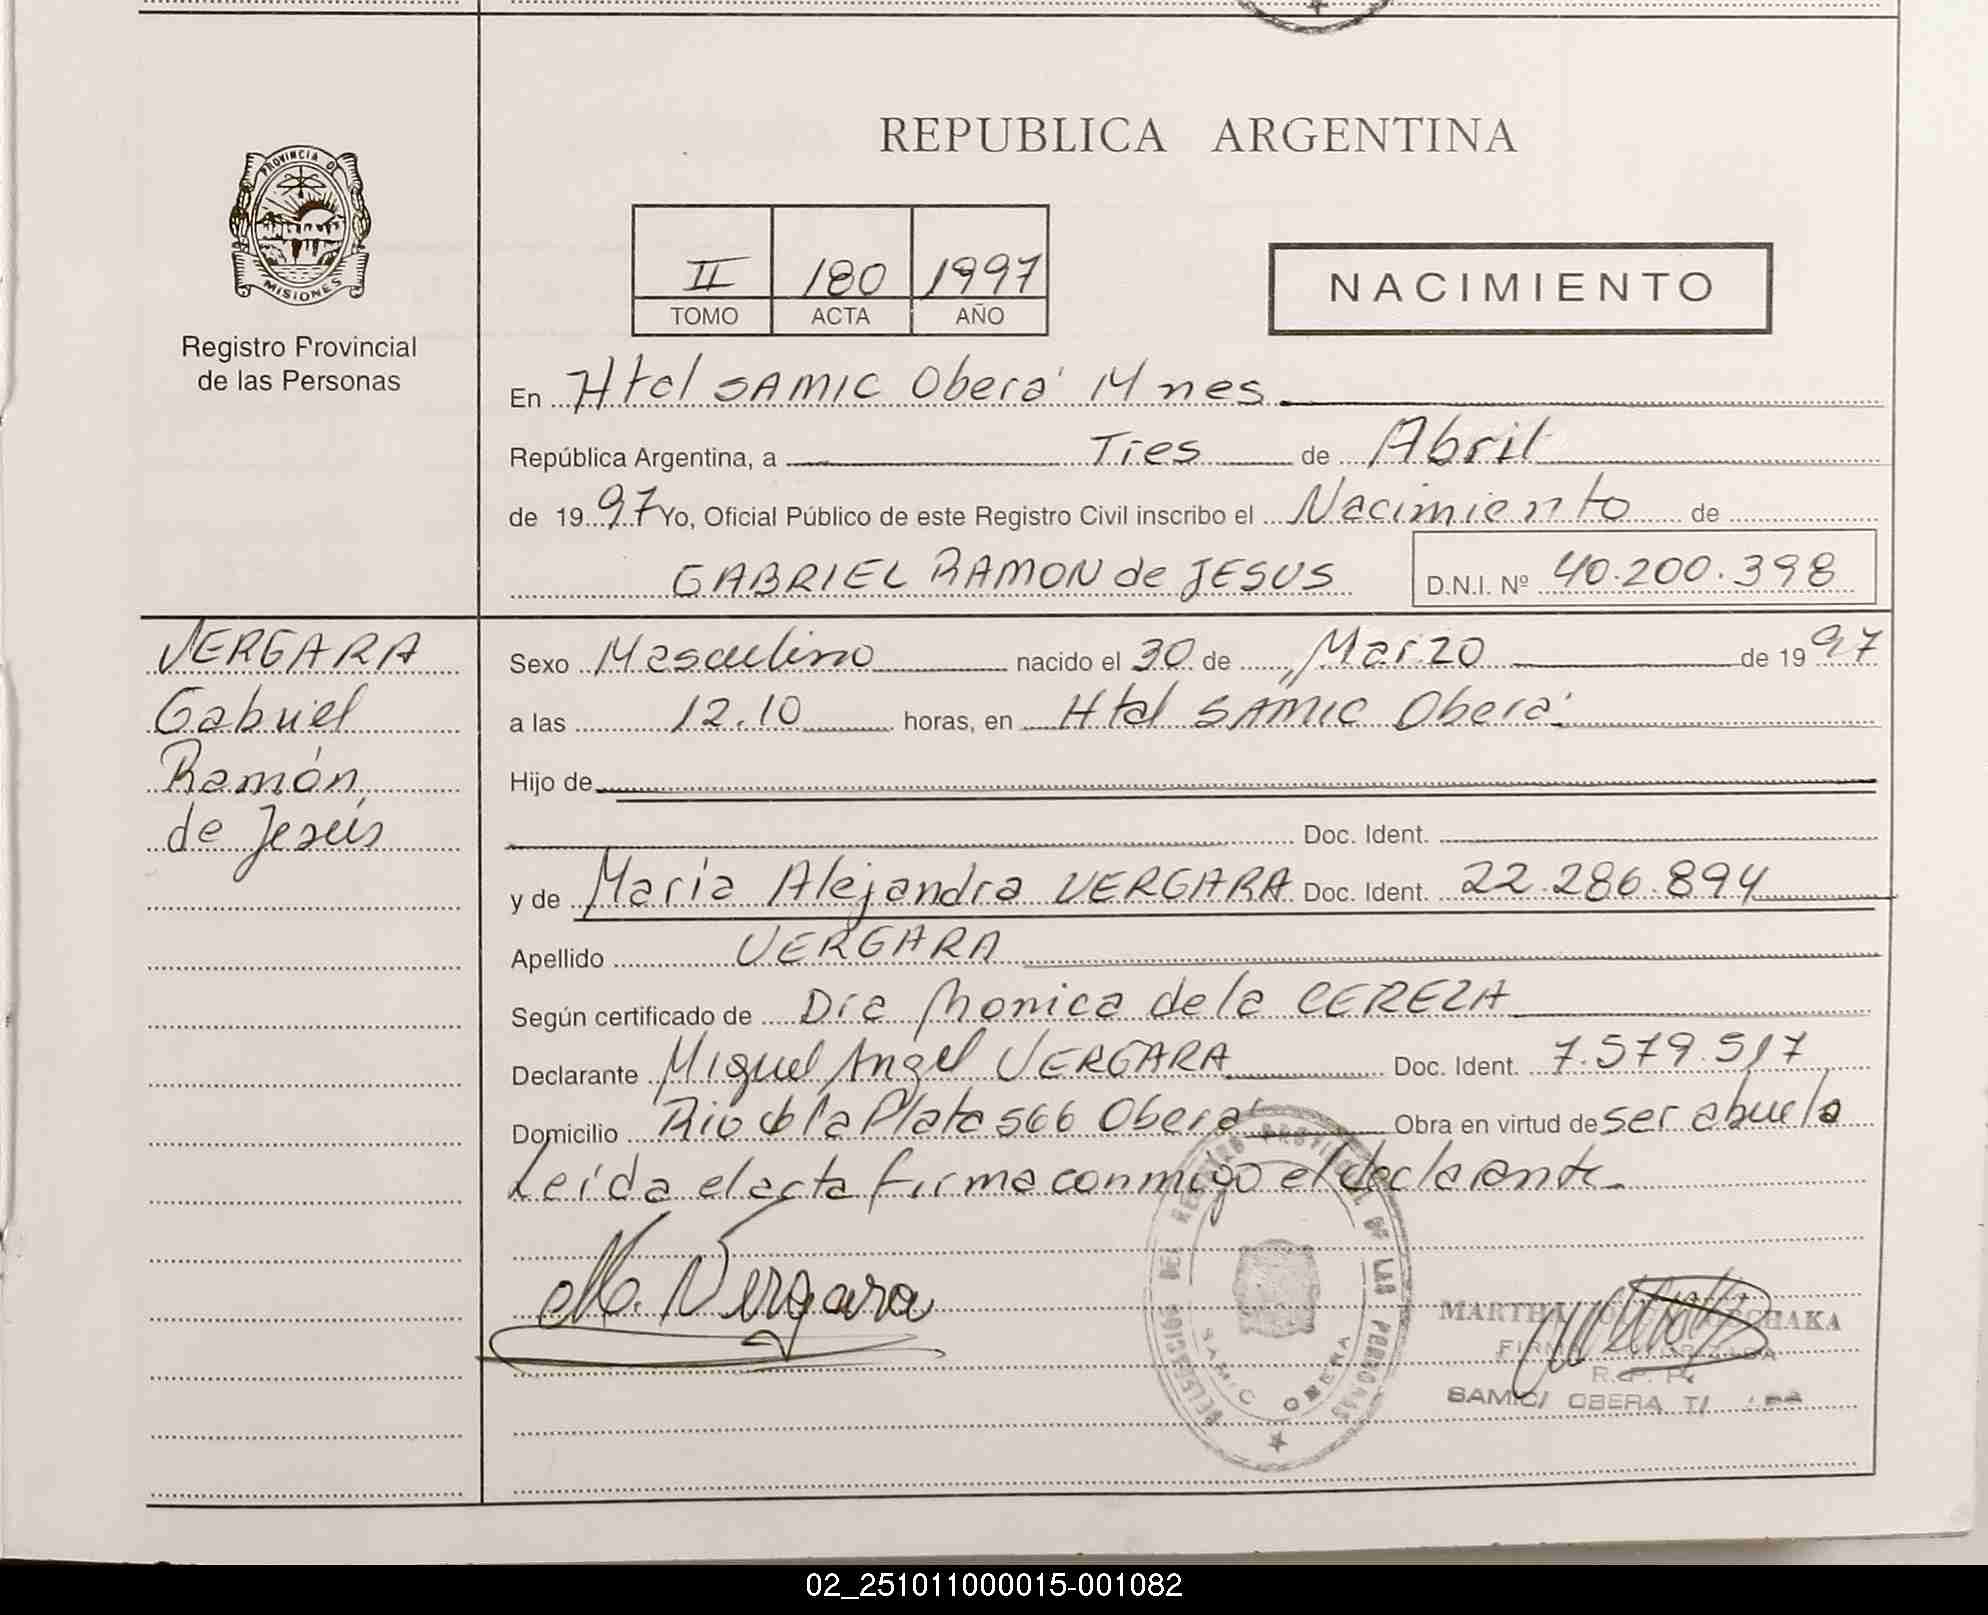 REPUBLICA ARGENTINA
PROVINCIA DE
MISIONES
Registro Provincial
de las Personas
II 180 1997
TOMO ACTA AÑO
NACIMIENTO
En Htal SAMIC Oberá Mnes
República Argentina, a Tres de Abril
de 1997 Yo, Oficial Público de este Registro Civil inscribo el Nacimiento de
GABRIEL RAMON de JESUS D.N.I. Nº 40.200.398
VERGARA
Gabriel
Ramón
de Jesús
Sexo Masculino nacido el 30 de Marzo de 1997
a las 12.10 horas, en Htal SAMIC Oberá
Hijo de
Doc. Ident.
y de María Alejandra VERGARA Doc. Ident. 22.286.894
Apellido VERGARA
Según certificado de Dra Monica de la CEREZA
Declarante Miguel Angel VERGARA Doc. Ident. 7.579.517
Domicilio Rio de la Plata 566 Oberá Obra en virtud de ser abuelo
Leída el acta firma conmigo el declarante
M. Vergara
DELEGACION DEL REGISTRO PROVINCIAL DE LAS PERSONAS
SAMIC OBERA
MARTHA
R. P. P.
SAMIC/ OBERA
02_251011000015-001082